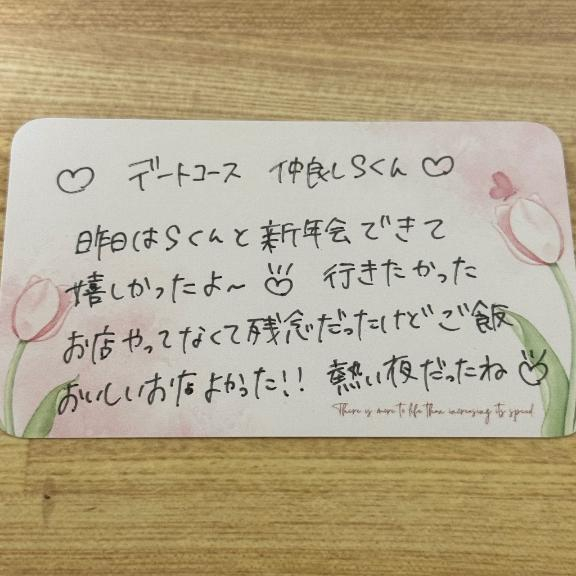 ♡ デートコース 仲良しSくん ♡
昨日はSくんと新年会できて
嬉しかったよ〜♡ 行きたかった
お店やってなくて残念だったけどご飯
おいしいお店よかった!! 熱い夜だったね♡
There is more to life than increasing its speed